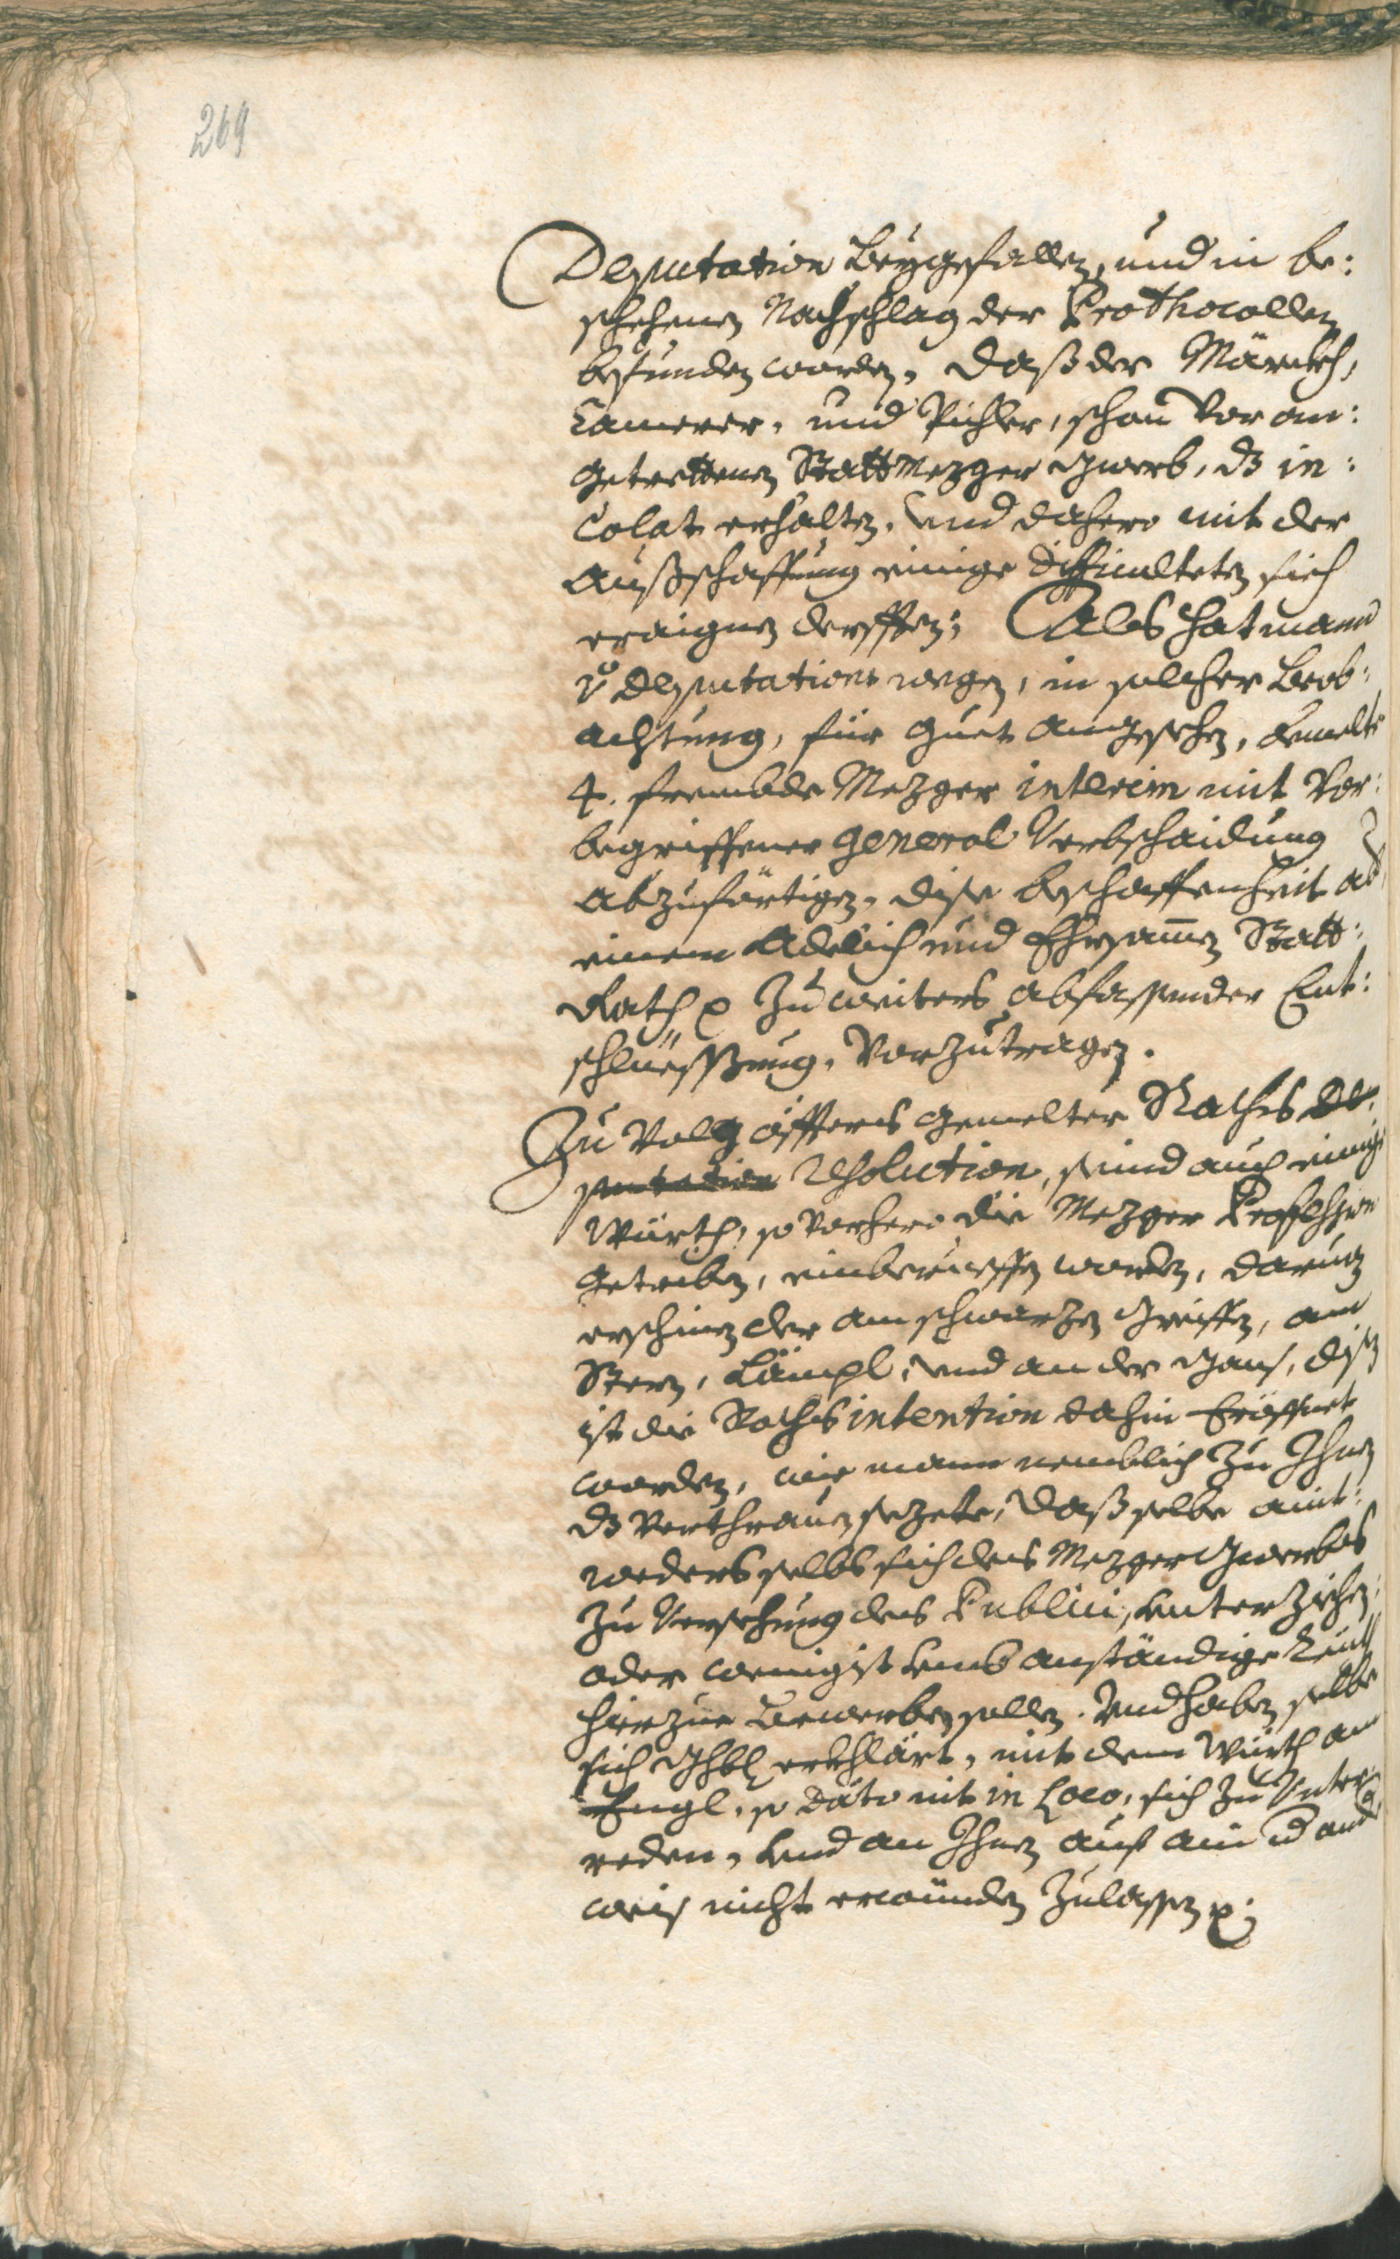 269
Deputation beygefallen, und in be:
schehenen Nachschlag der Prothocollen
befunden worden, daß der Märckh,
Camerer, und Pichler, schon vor an:
getrettenen Stattmezger Gwerb, dz in:
colat erhalten, und dahero mit der
Außschaffung einige difficulteten sich
eraignen derfften; Als hat mann
Deputations wegen, in solcher Beob:
achtung, für guet angesehen, bemelte
4. frembde Mezger interim mit vor:
begriffener general Verbschaidung
abzuförtigen, dise beschaffenheit ab
einem Adelich und Ehrsamen Statt:
Rath zu weiters abfassender Ent:
schliessung, vorzutragen.
Zu Volg öffters gemelter Raths De:
putation resolution, seind auch einige
Würth, so vorhero die Mezger Profession
getriben, einberueffen worden, darunter
erschinen der am schwarzen Greiffen, am
Stern, Lämpl, und an der Gans, disen
ist die Raths intention dahin Eröffnet
worden, wie mann nemblich zu Ihnen
dz Verthrauen sezete, daß selbe aint:
weders selbs sich des Mezger Gwerbes
zu Versehung des Publici, unterziehen,
oder wenigist umb anständige Leuth
hierzue bewerben sollen. Und haben selbe
sich erkhlärt, mit dem Würth am
Engl, so dato nit in Loco, sich zu Unter:
reden, und an Ihnen auf ain und and
weis nicht erwünden zulassen